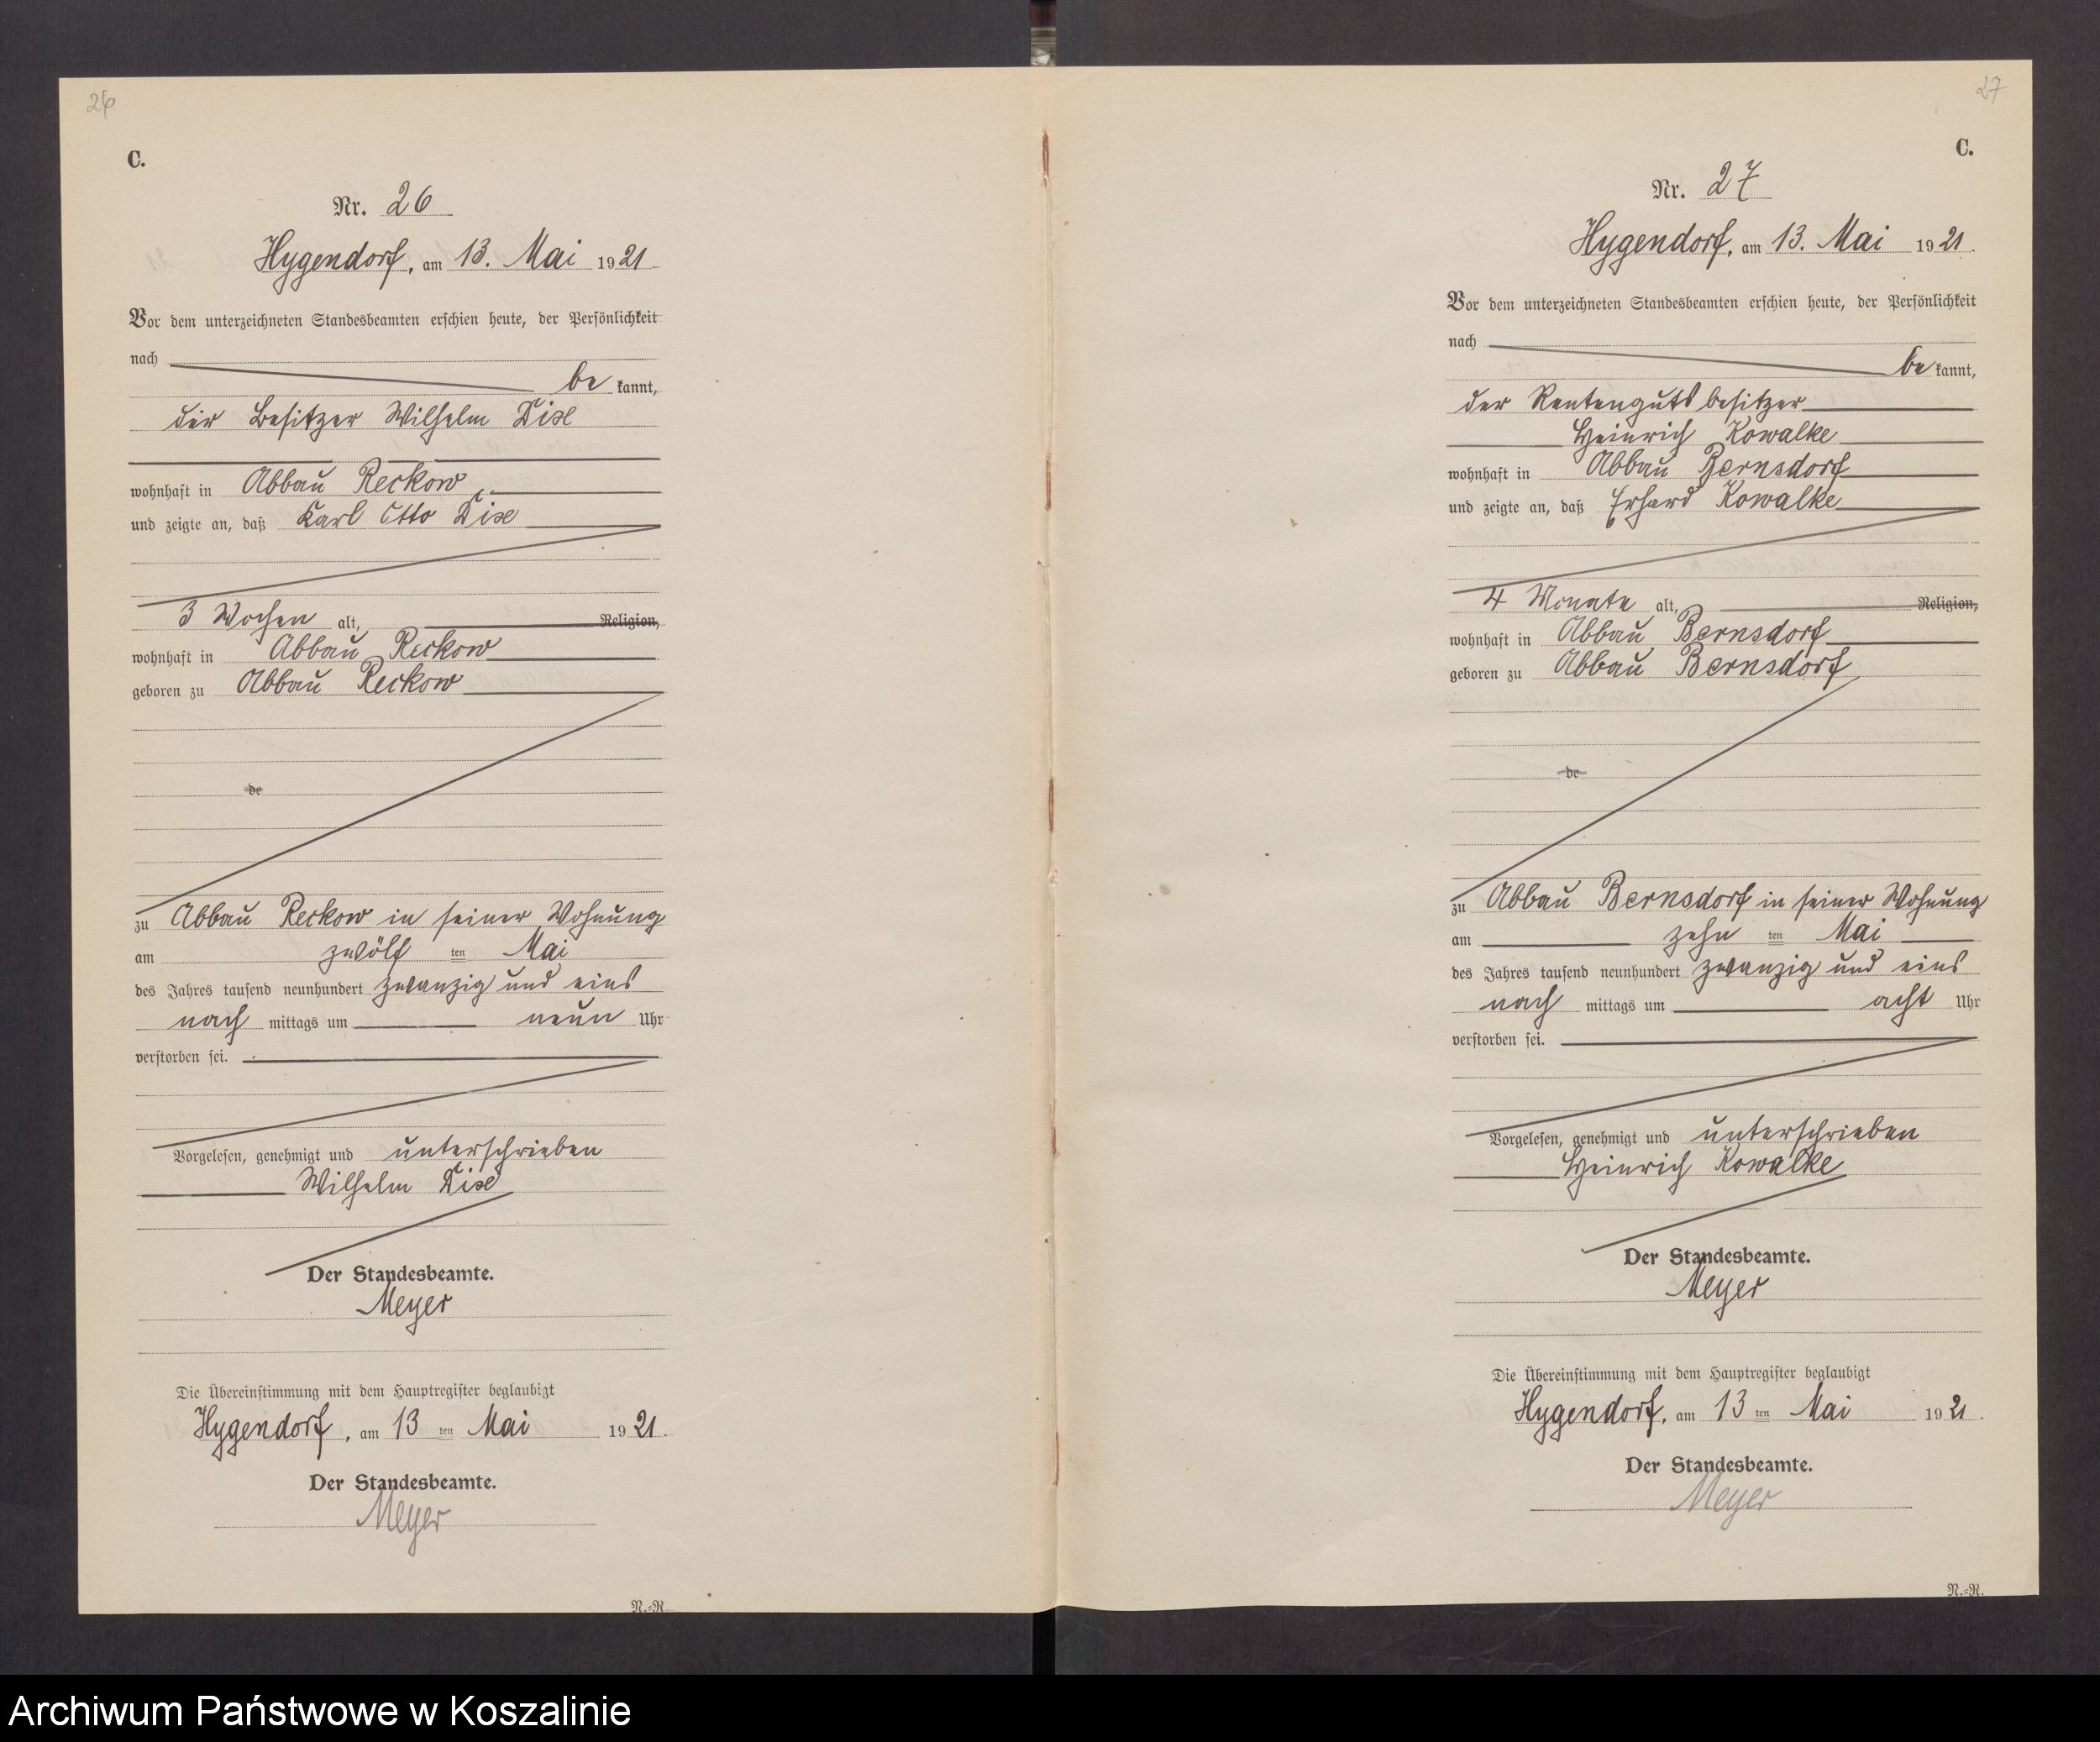 26
C.
Nr. 26
Hygendorf, am 13. Mai 1921
Vor dem unterzeichneten Standesbeamten erschien heute, der Persönlichkeit
nach
be kannt,
der Besitzer Wilhelm Dix
wohnhaft in Abbau Reckow
und zeigte an, daß Karl Otto Dix
3 Wochen alt, Religion,
wohnhaft in Abbau Reckow
geboren zu Abbau Reckow
de
zu Abbau Reckow in seiner Wohnung
am zwölf ten Mai
des Jahres tausend neunhundert zwanzig und eins
nach mittags um neun Uhr
verstorben sei.
Vorgelesen, genehmigt und unterschrieben
Wilhelm Dix
Der Standesbeamte.
Meyer
Die Übereinstimmung mit dem Hauptregister beglaubigt
Hygendorf, am 13 ten Mai 1921.
Der Standesbeamte.
Meyer
N.=R.
27
C.
Nr. 27
Hygendorf, am 13. Mai 1921.
Vor dem unterzeichneten Standesbeamten erschien heute, der Persönlichkeit
nach
be kannt,
der Rentengutsbesitzer
Heinrich Kowalke
wohnhaft in Abbau Bernsdorf
und zeigte an, daß Erhard Kowalke
4 Monate alt, Religion,
wohnhaft in Abbau Bernsdorf
geboren zu Abbau Bernsdorf
de
zu Abbau Bernsdorf in seiner Wohnung
am zehn ten Mai
des Jahres tausend neunhundert zwanzig und eins
nach mittags um acht Uhr
verstorben sei.
Vorgelesen, genehmigt und unterschrieben
Heinrich Kowalke
Der Standesbeamte.
Meyer
Die Übereinstimmung mit dem Hauptregister beglaubigt
Hygendorf, am 13 ten Mai 1921.
Der Standesbeamte.
Meyer
N.=R.
Archiwum Państwowe w Koszalinie